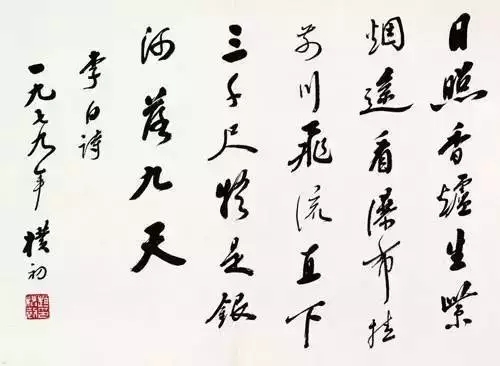 日照香爐生紫
烟遥看瀑布挂
前川飛流直下
三千尺疑是銀
河落九天
李白詩
一九七九年樸初